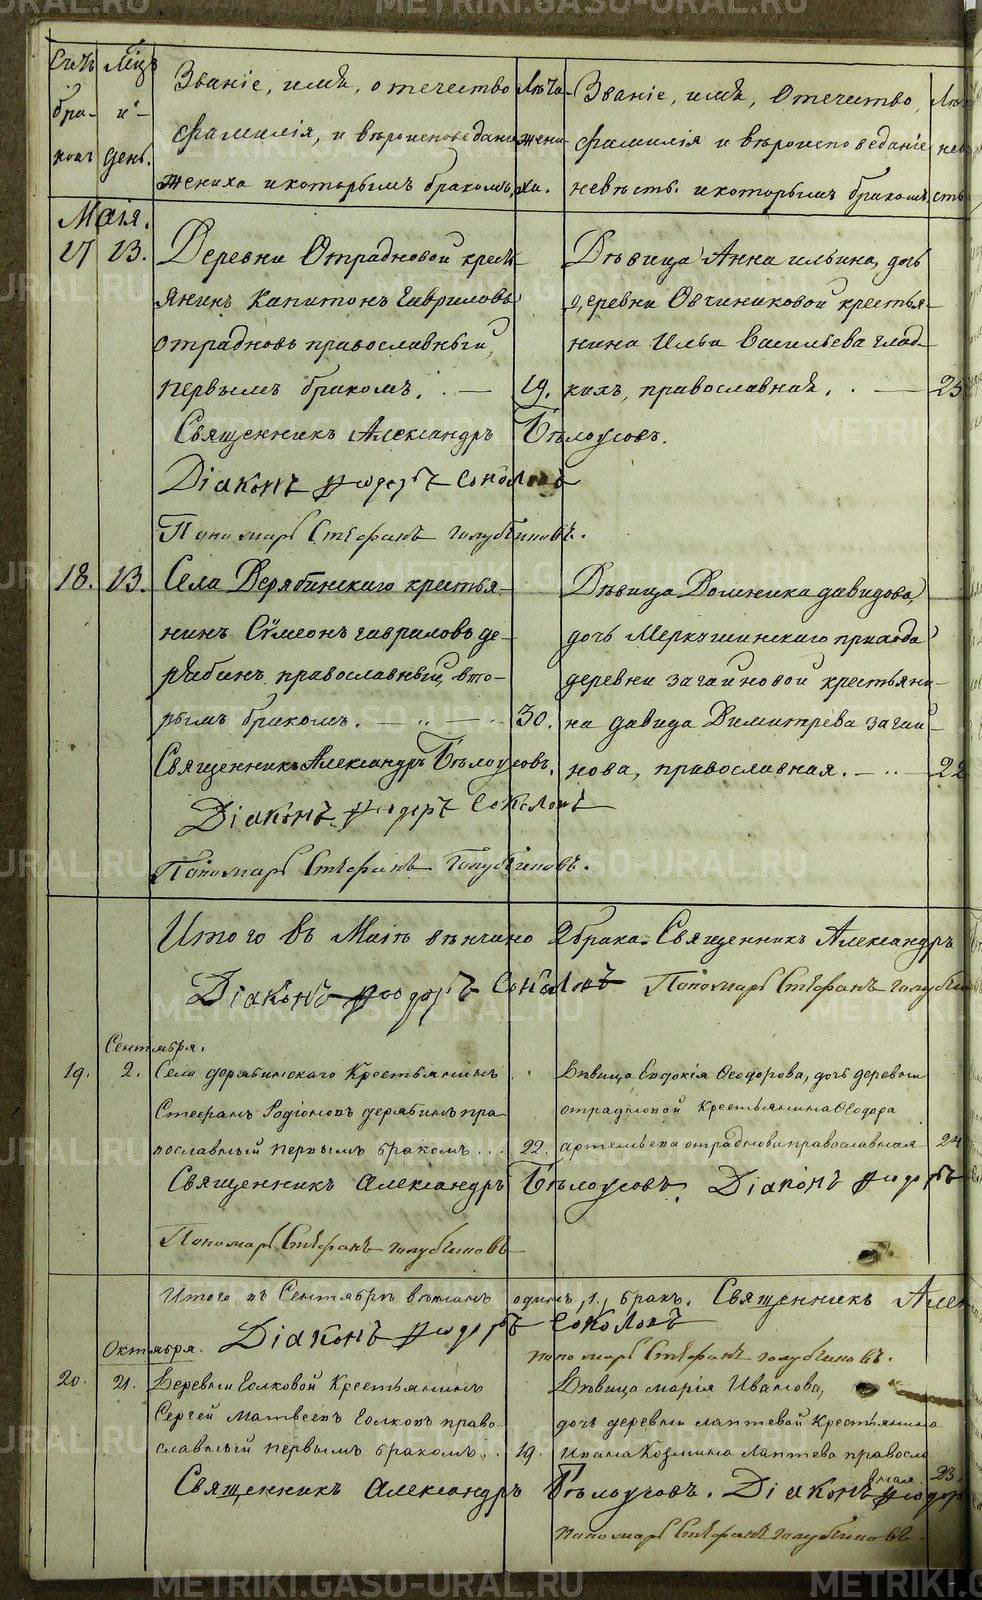 METRIKI.GASO-URAL.RU METRIKI.GASO-URAL.RU
Счетъ браковъ
Мѣсяцъ и день.
Званіе, имя, отечество
фамилія, и вѣроисповеданіе
жениха и которымъ бракомъ.
Лѣта жениха.
Званіе, имя, Отечество,
фамилія и вѣроисповеданіе
невѣсты. и которымъ бракомъ
Маія.
17 13. Деревни Отрадновой кресть-
янинъ Капитонъ Гавриловъ
отрадновъ православный,
первымъ бракомъ. — 19.
Дѣвица Анна ильина, дочь
деревни Овчиниковой крестья-
нина Ильи Васильева глад-
кихъ, православная. — 25
Священникъ Александръ Бѣлоусовъ.
Діаконъ Ѳеодоръ Соколовъ
Пономарь Стефанъ голубчиковъ.
18. 13. Села Дерябинскаго крестья-
нинъ Сѵмеонъ гавриловъ де-
рябинъ православный, вто-
рымъ бракомъ. — „ — 30.
Дѣвица Домника давидова,
дочь Меркушинскаго прихода
деревни загайновой крестьяни-
на давида Димитрева загай-
нова, православная. — „ — 22
Священникъ Александръ Бѣлоусовъ.
Діаконъ Ѳеодоръ Соколовъ
Пономарь Стефанъ Голубчиковъ.
Итого въ Маіѣ вѣнчано 2 брака. Священникъ Александръ
Діаконъ Ѳеодоръ Соколовъ Пономарь Стефанъ голубчиковъ
Сентября.
19. 2. Села дерябинскаго Крестьянинъ
Стефанъ Родіоновъ дерябинъ пра-
вославный первымъ бракомъ... 22.
Дѣвица Евдокія Ѳеодорова, дочь деревни
отрадновой Крестьянина Ѳеодора
артемьева отраднова православная 24
Священникъ Александръ Бѣлоусовъ. Діаконъ Ѳеодоръ
Пономарь Стефанъ голубчиковъ
Итого въ Сентябрѣ вѣнчанъ одинъ, 1, бракъ. Священникъ Алек
Діаконъ Ѳеодоръ Соколовъ
пономарь Стефанъ голубчиковъ.
Октября.
20. 21. Деревни Голковой Крестьянинъ
Сергей Матвеевъ Голковъ право-
славный первымъ бракомъ.. 19.
Дѣвица марія Иванова,
дочь деревни лаптевой Крестьянина
Ивана Козмина Лаптева правосла
вная. 23.
Священникъ Александръ Бѣлоусовъ. Діаконъ Ѳеодоръ
пономарь Стефанъ голубчиковъ
METRIKI.GASO-URAL.RU METRIKI.G